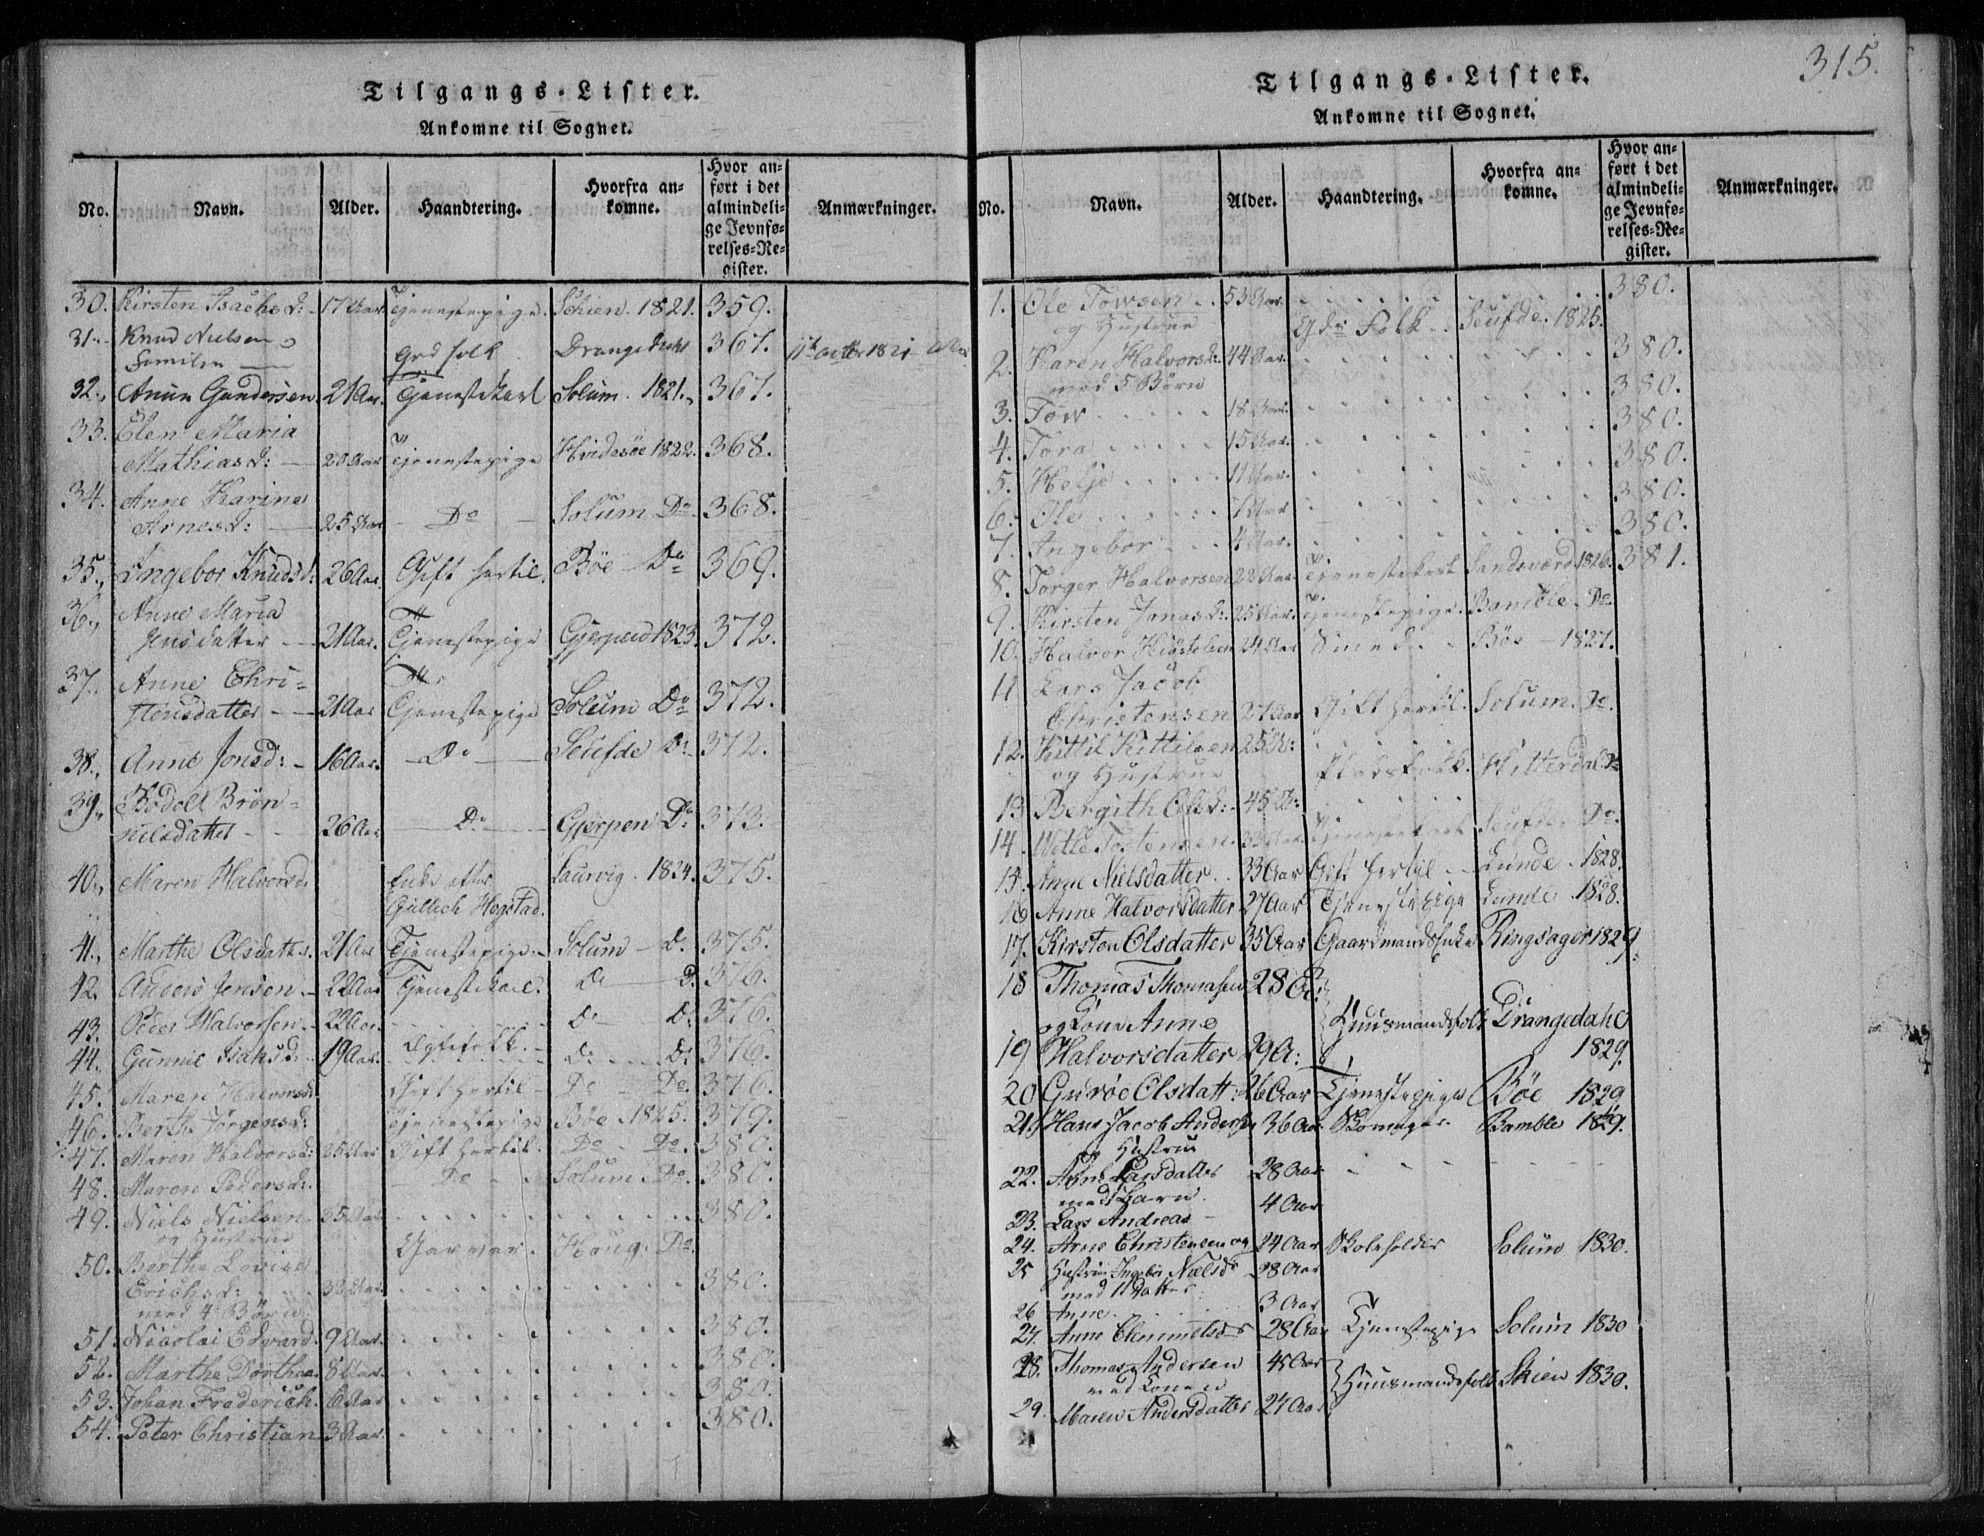 Tilgangs-Lister.
Ankomne til Sognet.
No. Navn. Alder. Haandtering. Hvorfra ankomne. Hvor anført i det almindelige Jevnførelses-Register. Anmærkninger.
30. Kirsten Isachsd: 17 Aar Tjenestepige. Schien. 1821. 359.
31. Knud Nielsen
Familie Grd folk Drangedahl 367.
32. Amun Gundersen 21 Aar. Tjenestekarl Solum. 1821. 367.
33. Elen Maria
Mathiasd: 20 Aar Tjenestepige Hvidesöe 1822. 368.
34. Anne Karine
Arnesd: 25 Aar Do Solum Do 368.
35. Ingebor Knudsd: 26 Aar. Gift hertil. Böe Do 369.
36. Anne Maria
Jensdatter 21 Aar. Tjenestepige Gjerpen 1823. 372.
37. Anne Chri-
stensdatter 21 Aar Tjenestepige Solum Do 372.
38. Anne Jonsd: 16 Aar. Do Seufde Do 372.
39. Bodell Brön-
nilsdatter 26 Aar Do Gjerpen Do 373.
40. Maren Halvorsd. Enke efter Laurvig. 1824. 375.
Gullich Hogstad.
41. Marthe Olsdatter. 21 Aar Tjenestepige. Solum D. 375.
42. Anders Jensen 22 Aar Tjenestekarl. D. D. 376.
43. Peder Halvorsen 22 Aar. D. D. 376.
Egtefolk.
44. Gunnil Isachsd: 19 Aar. D. D. 376.
45. Maren Halvorsd: Gift hertil Do Do. 376.
46. Berth Jörgensd: Tjenestepige Böe. 1825. 379.
47. Maren Halvorsd: 25 Aar Gift hertil. Do Do. 380.
48. Maren Pedersd: Do Solum. Do. 380.
49. Niels Nielsen 35 Aar 380.
og Hustrue Garver. Haug. Do.
50. Berthe Lovise
Erichsd: 32 Aar. 380.
med 4 Börn
51. Nicolai Edvard. 9 Aar. 380.
52. Marthe Dorthea. 8 Aar. 380.
53. Johan Fraderich. 6 Aar 380.
54. Peter Christian 3 Aar. 380.
315.
Tilgangs-Lister.
Ankomne til Sognet.
No. Navn. Alder. Haandtering. Hvorfra ankomne. Hvor anført i det almindelige Jevnførelses-Register. Anmærkninger.
1. Ole Towsen 53 Aar. 380.
og Hustrue Gds Folk Seufde. 1825.
2. Karen Halvorsd: 44 Aar. 380.
med 5 Börn
3. Tow 18 Aar. 380.
4. Tora 15 Aar. 380.
5. Helje 11 Aar. 380.
6. Ole 7 Aar 380.
7. Ingebor 4 Aar. 380.
8. Torger Halvorsen 22 Aar. Tjenestekarl Sandsværd 1826. 381.
9. Kirsten Jonasd: 25 Aar. Tjenestepige. Bamble. Do.
10. Halvor 24 Aar Smed. Böe 1827.
11 Lars Jacob
Christensen 27 Aar Gift hertil. Solum. Do.
12. Kittil Kittilsen 25 Ar:
og Hustrue Pladsfolk. Hitterdal Do
13 Bergith Olsd: 45 Ar:
14. Wetle Tostensen. 33 Aar. Tjenestekarl Seufde. Do.
15. Anne Nielsdatter 33 Aar Gift hertil Lunde. 1828.
16 Anne Halvorsdatter 27 Aar Tjenestepige Lunde 1828.
17. Kirsten Olsdatter 35 Aar Gaardmandsenke Ringsager 1829.
18 Thomas Thomasen 28 A:
og Kone Anne Huusmandsfolk Drangedahl
19 Halvorsdatter 29 A: 1829.
20 Guröe Olsdatt: 26 Aar Tjenestepige Böe 1829
21 Hans Jacob Anders 36 Aar Skomager Bamble 1829.
og Hustrue
22. Larsdatter 28 Aar
med Barn
23. Lars Andreas 4 Aar
24. Arne Christensen og 24 Aar Skoleholder Solum 1830.
25 Hustrue Ingebor Nielsdr 28 Aar
med 1 Datter
26 Anne 3 Aar
27 Anne Clemmetsdr 28 Aar Tjenestepige Solum 1830
28. Thomas Andersen 45 Aar
med Konen Huusmandsfolk Skien 1830.
29. Maren Andersdatter 24 Aar